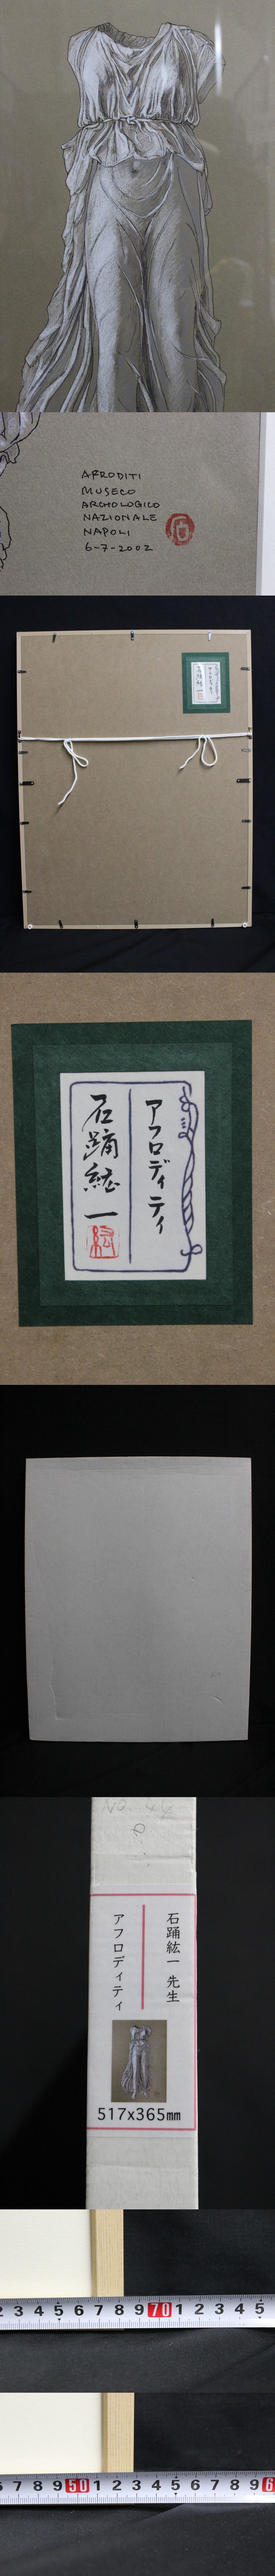 AFRODITI
MUSECO
ARCHOLOGICO
NAZIONALE
NAPOLI
6-7-2002
石
アフロディティ
石踊紘一
紘
アフロディティ
石踊紘一
No. 44
石踊紘一先生
アフロディティ
517x365mm
2 3 4 5 6 7 8 9 70 1 2 3 4 5
6 7 8 9 50 1 2 3 4 5 6 7 8 9 6